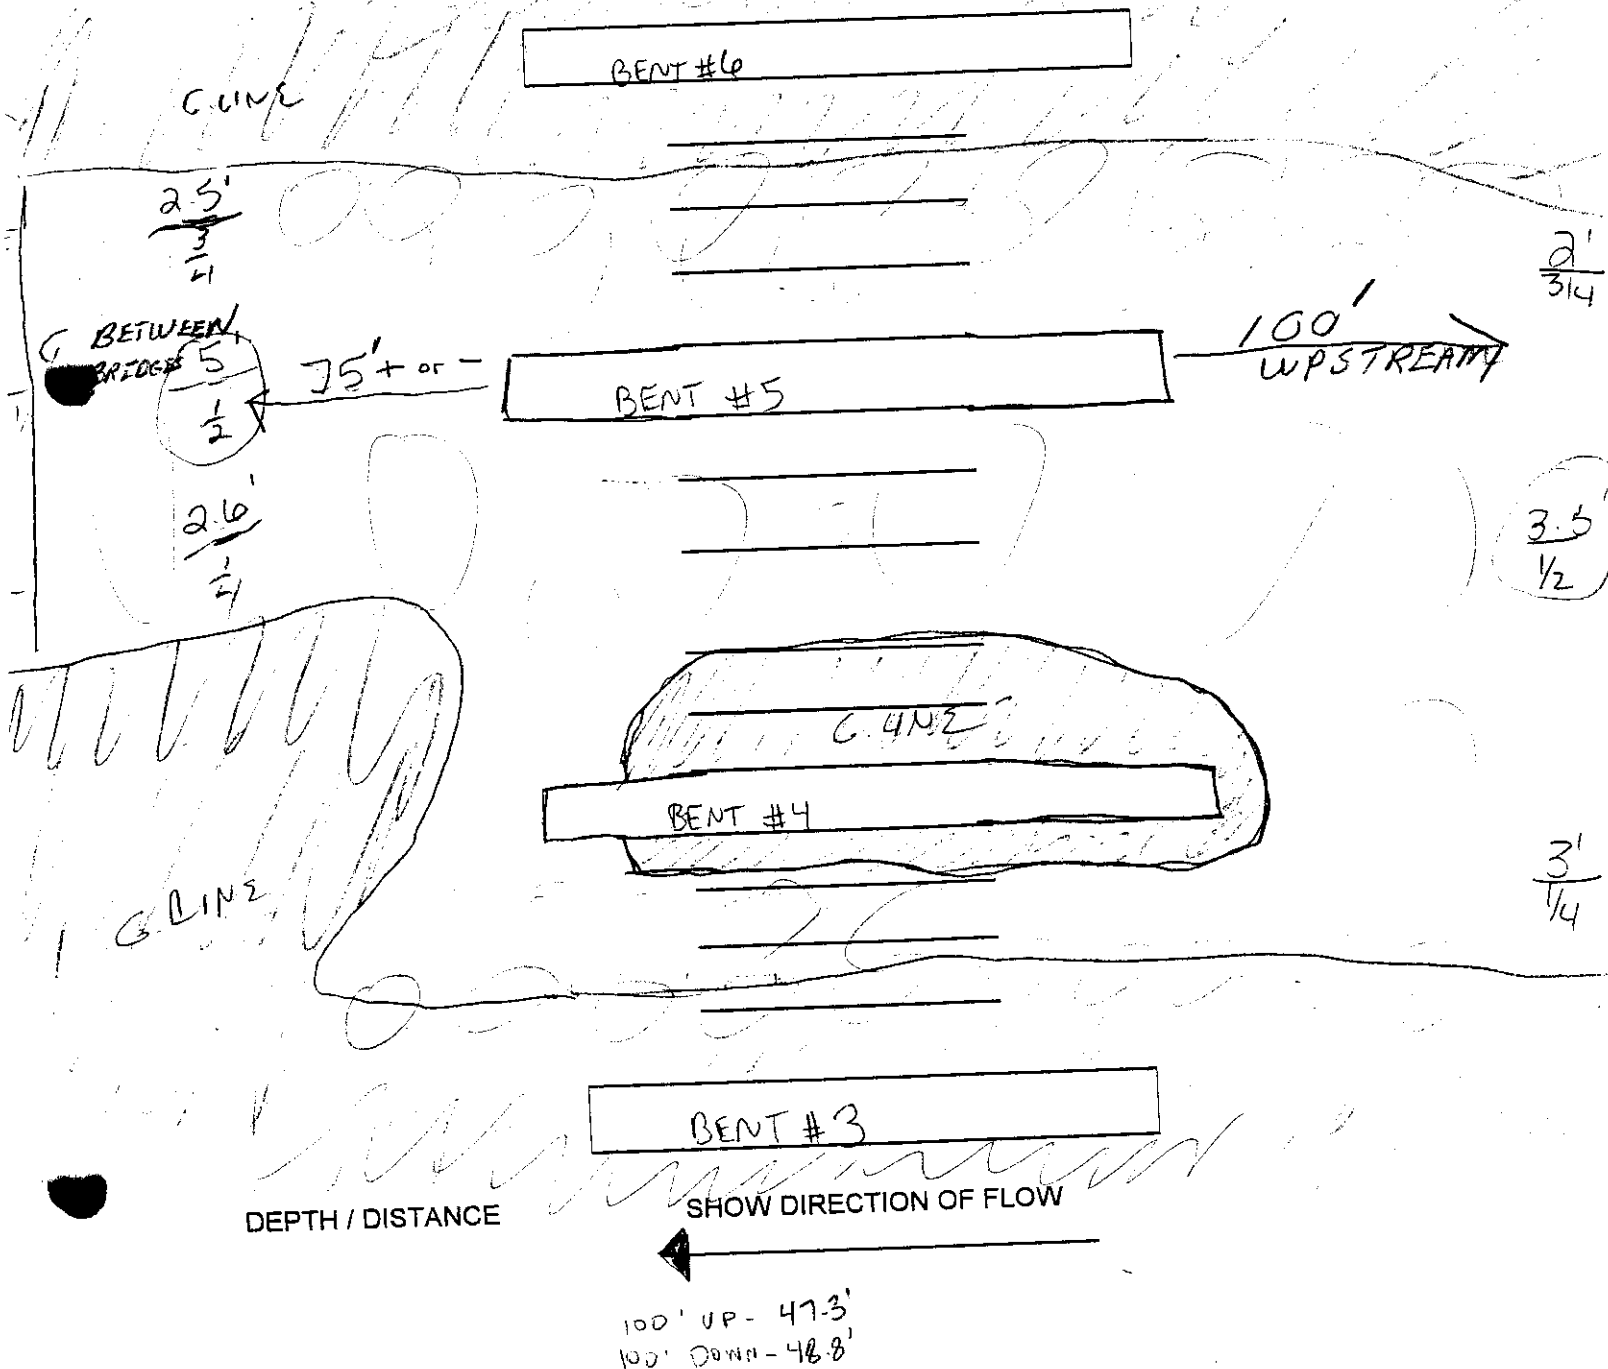 BENT #6
G.LINE
2.5'
3
4
2'
3/4
C BETWEEN
BRIDGES
5'
1
2
75' + or -
BENT #5
100'
UPSTREAM
2.6'
1
4
3.5'
1/2
G.LINE
BENT #4
G.LINE
3'
1/4
BENT #3
DEPTH / DISTANCE
SHOW DIRECTION OF FLOW
100' UP - 47.3'
100' DOWN - 48.8'